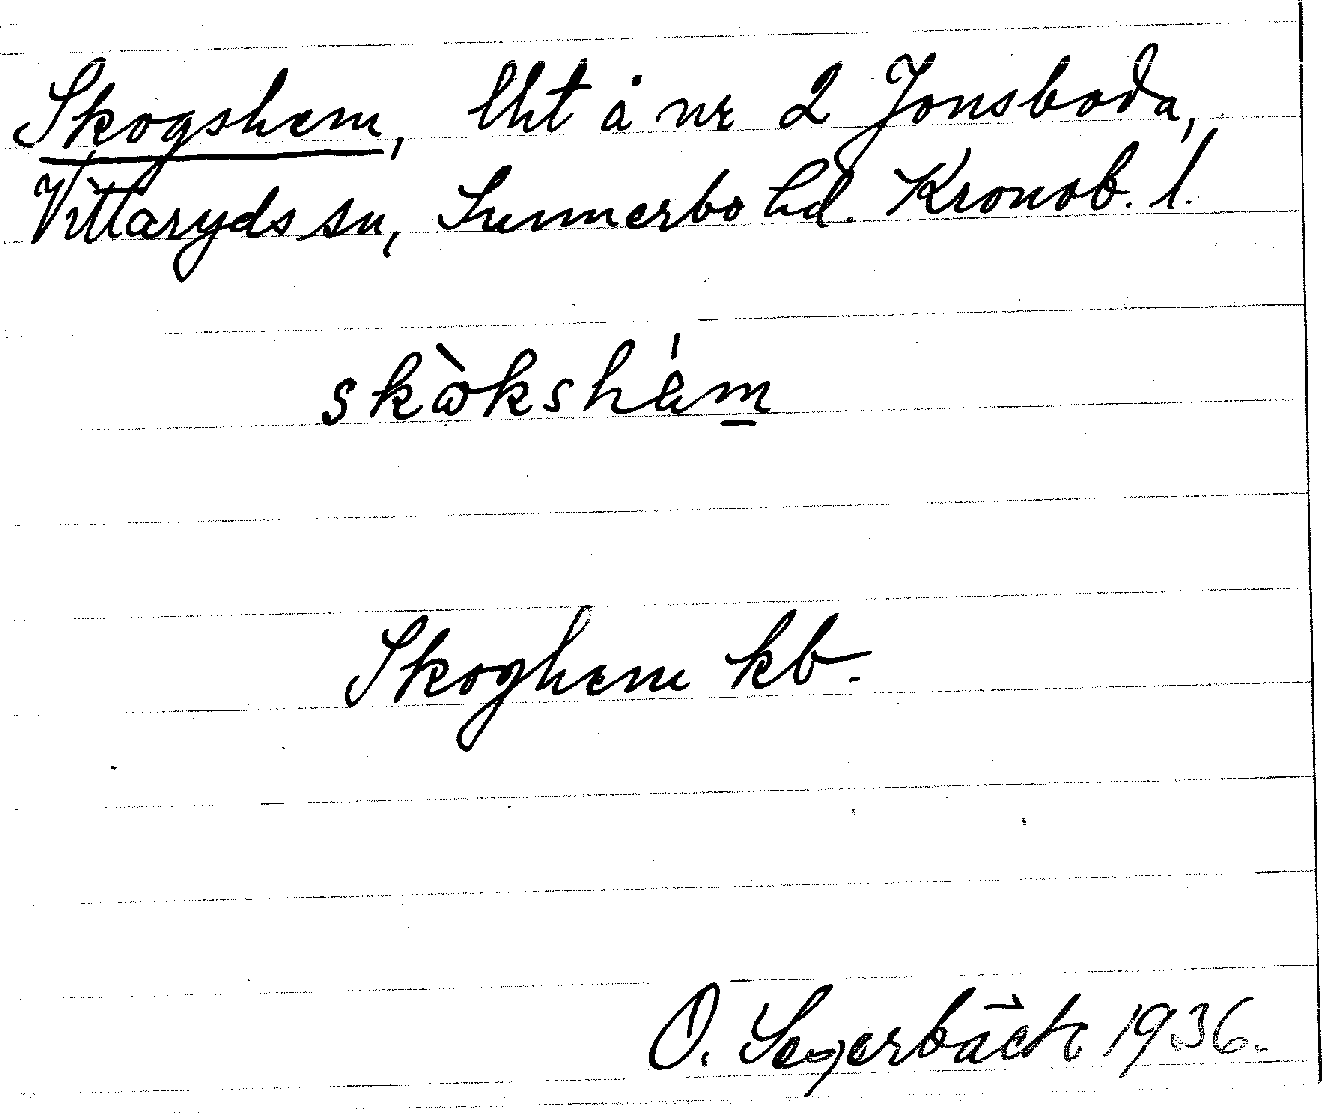 Skogshem, lht å nr 2 Jonsboda,
Vittaryds sn, Sunnerbo hd. Kronob. l.
skò̀kshém
Skoghem kb.
O. Segerbäck 1936.